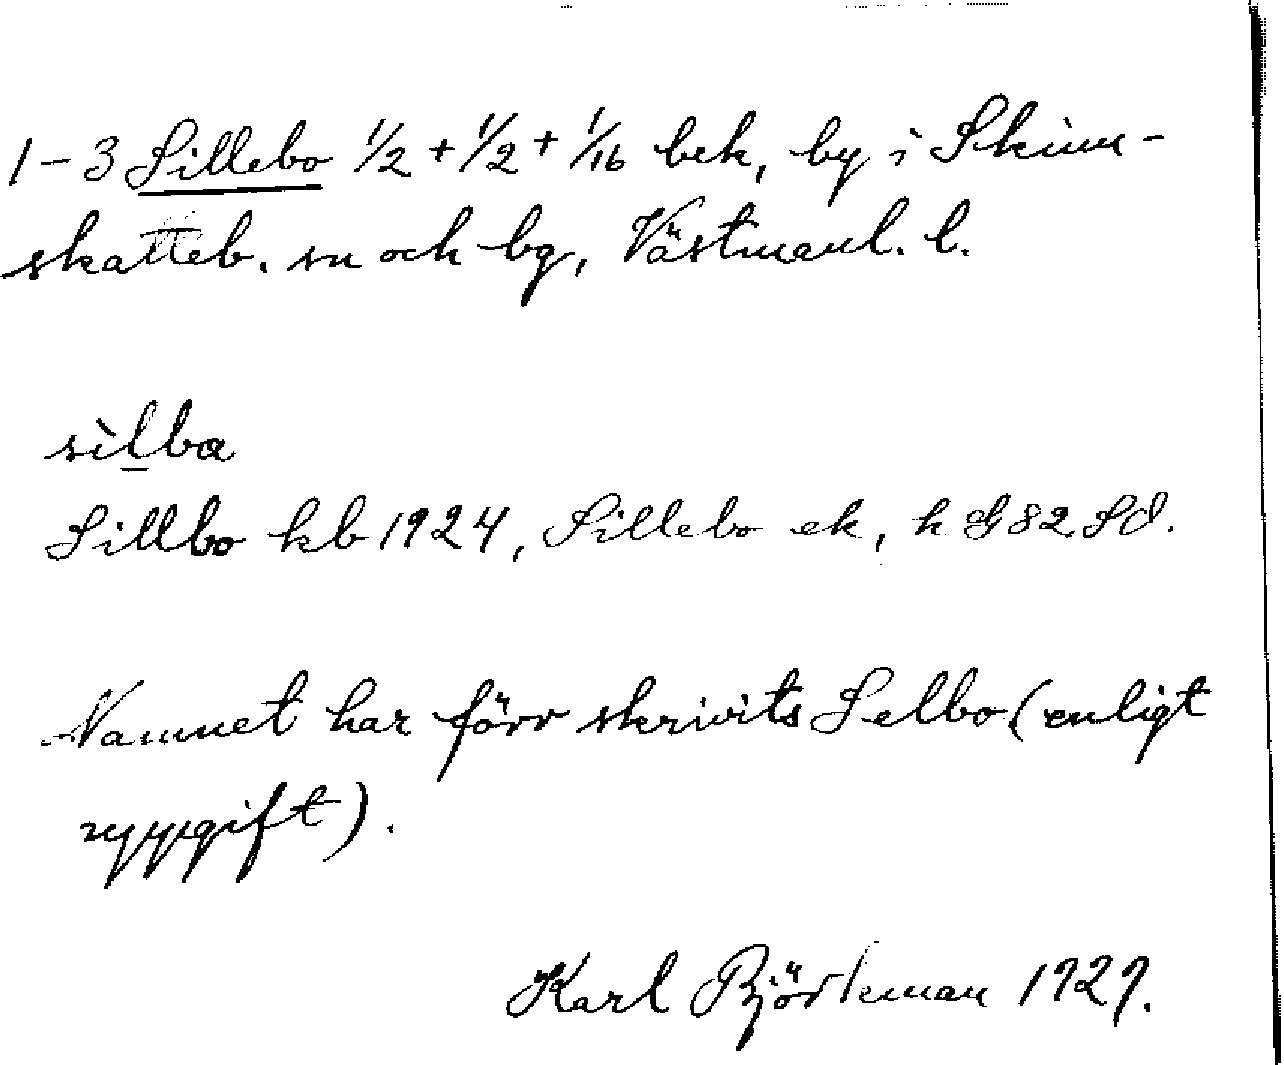 1-3 Sillebo 1/2 + 1/2 + 1/16 bek, by i Skinn-
skatteb. sn och bg, Västmanl. l.
silba
Sillbo kb 1924, Sillebo ek, h G 82 SO.
Namnet har förr skrivits Selbo (enligt
uppgift).
Karl Björkman 1929.